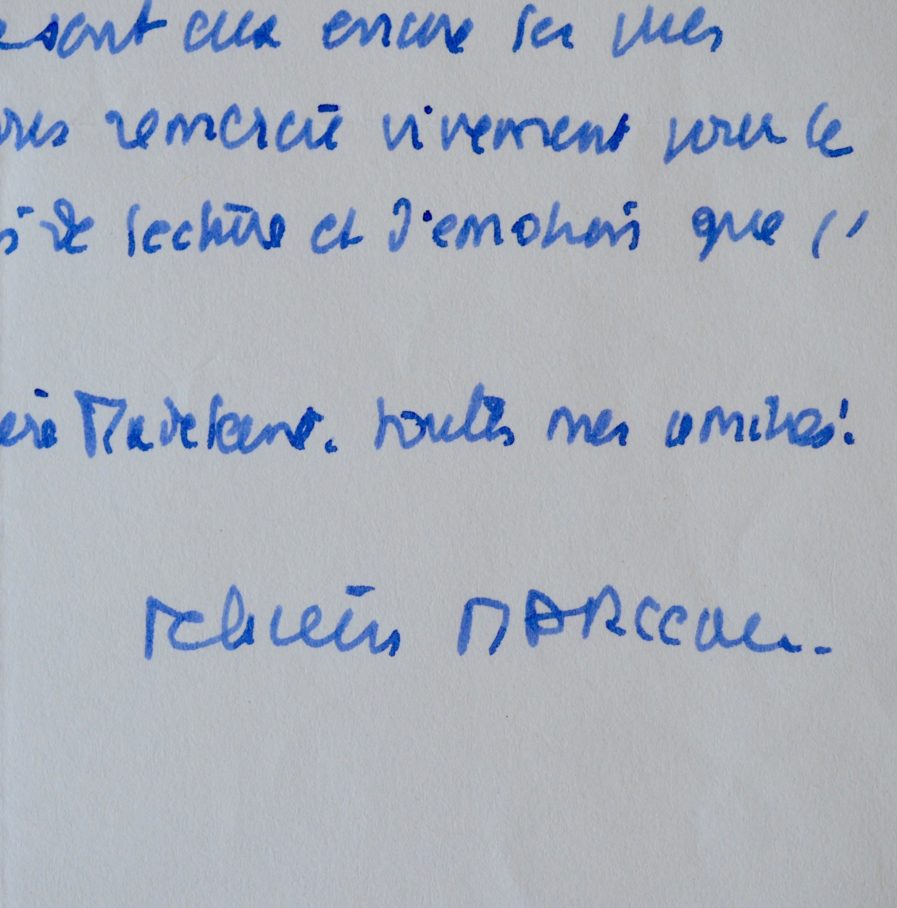 sont eux encore les mes
remercie vivement pour le
de lecture et d'emotions que j'
Madeleine. toutes mes amitiés!
MARCEAU.